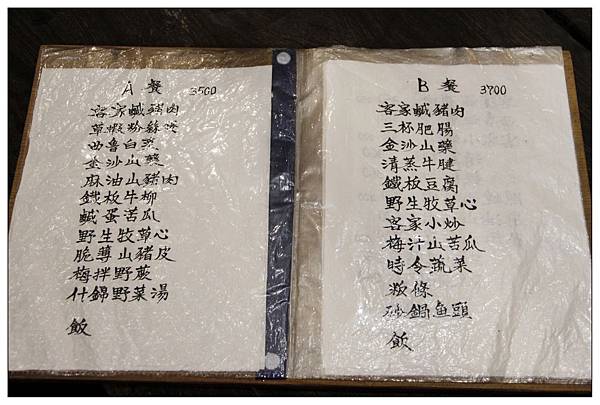 A 餐 3500
客家鹹豬肉
草蝦粉絲煲
西魯白菜
金沙山藥
麻油山豬肉
鐵板牛柳
鹹蛋苦瓜
野生牧草心
脆薄山豬皮
梅拌野蕨
什錦野菜湯
飯
B 餐 3900
客家鹹豬肉
三杯肥腸
金沙山藥
清蒸牛腱
鐵板豆腐
野生牧草心
客家小炒
梅汁山苦瓜
時令蔬菜
粄條
砂鍋魚頭
飯